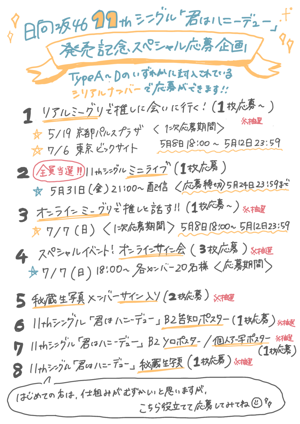 日向坂46 11thシングル「君はハニーデュー」
発売記念スペシャル応募企画
TypeA〜Dのいずれかに封入されている
シリアルナンバーで応募ができます!!
1 リアルミーグリで推しに会いに行く!(1枚応募〜)
※抽選
☆5/19 京都パルスプラザ <1次応募期間>
☆7/6 東京ビックサイト 5月8日18:00〜5月12日23:59
2 全員当選!! 11thシングルミニライブ(1枚応募)
☆5月31日(金)21:00〜配信 <応募締切)5月24日23:59まで
3 オンラインミーグリで推しと話す!!(1枚応募〜)
※抽選
☆7/7(日)<1次応募期間>5月8日18:00〜5月12日23:59
4 スペシャルイベント! オンラインサイン会(3枚応募)※抽選
☆7/7(日)18:00〜 各メンバー20名様 <応募期間>
5 秘蔵生写真×メンバーサイン入り(2枚応募)※抽選
6 11thシングル「君はハニーデュー」B2告知ポスター(1枚応募)※抽選
7 11thシングル「君はハニーデュー」B2ソロポスター/個人1字ポスター
(1枚応募)※抽選
8 11thシングル「君はハニーデュー」秘蔵生写真(1枚応募)※抽選
はじめての方は、仕組みがむずかしいと思いますが、
こちら役立てて応募してみてね